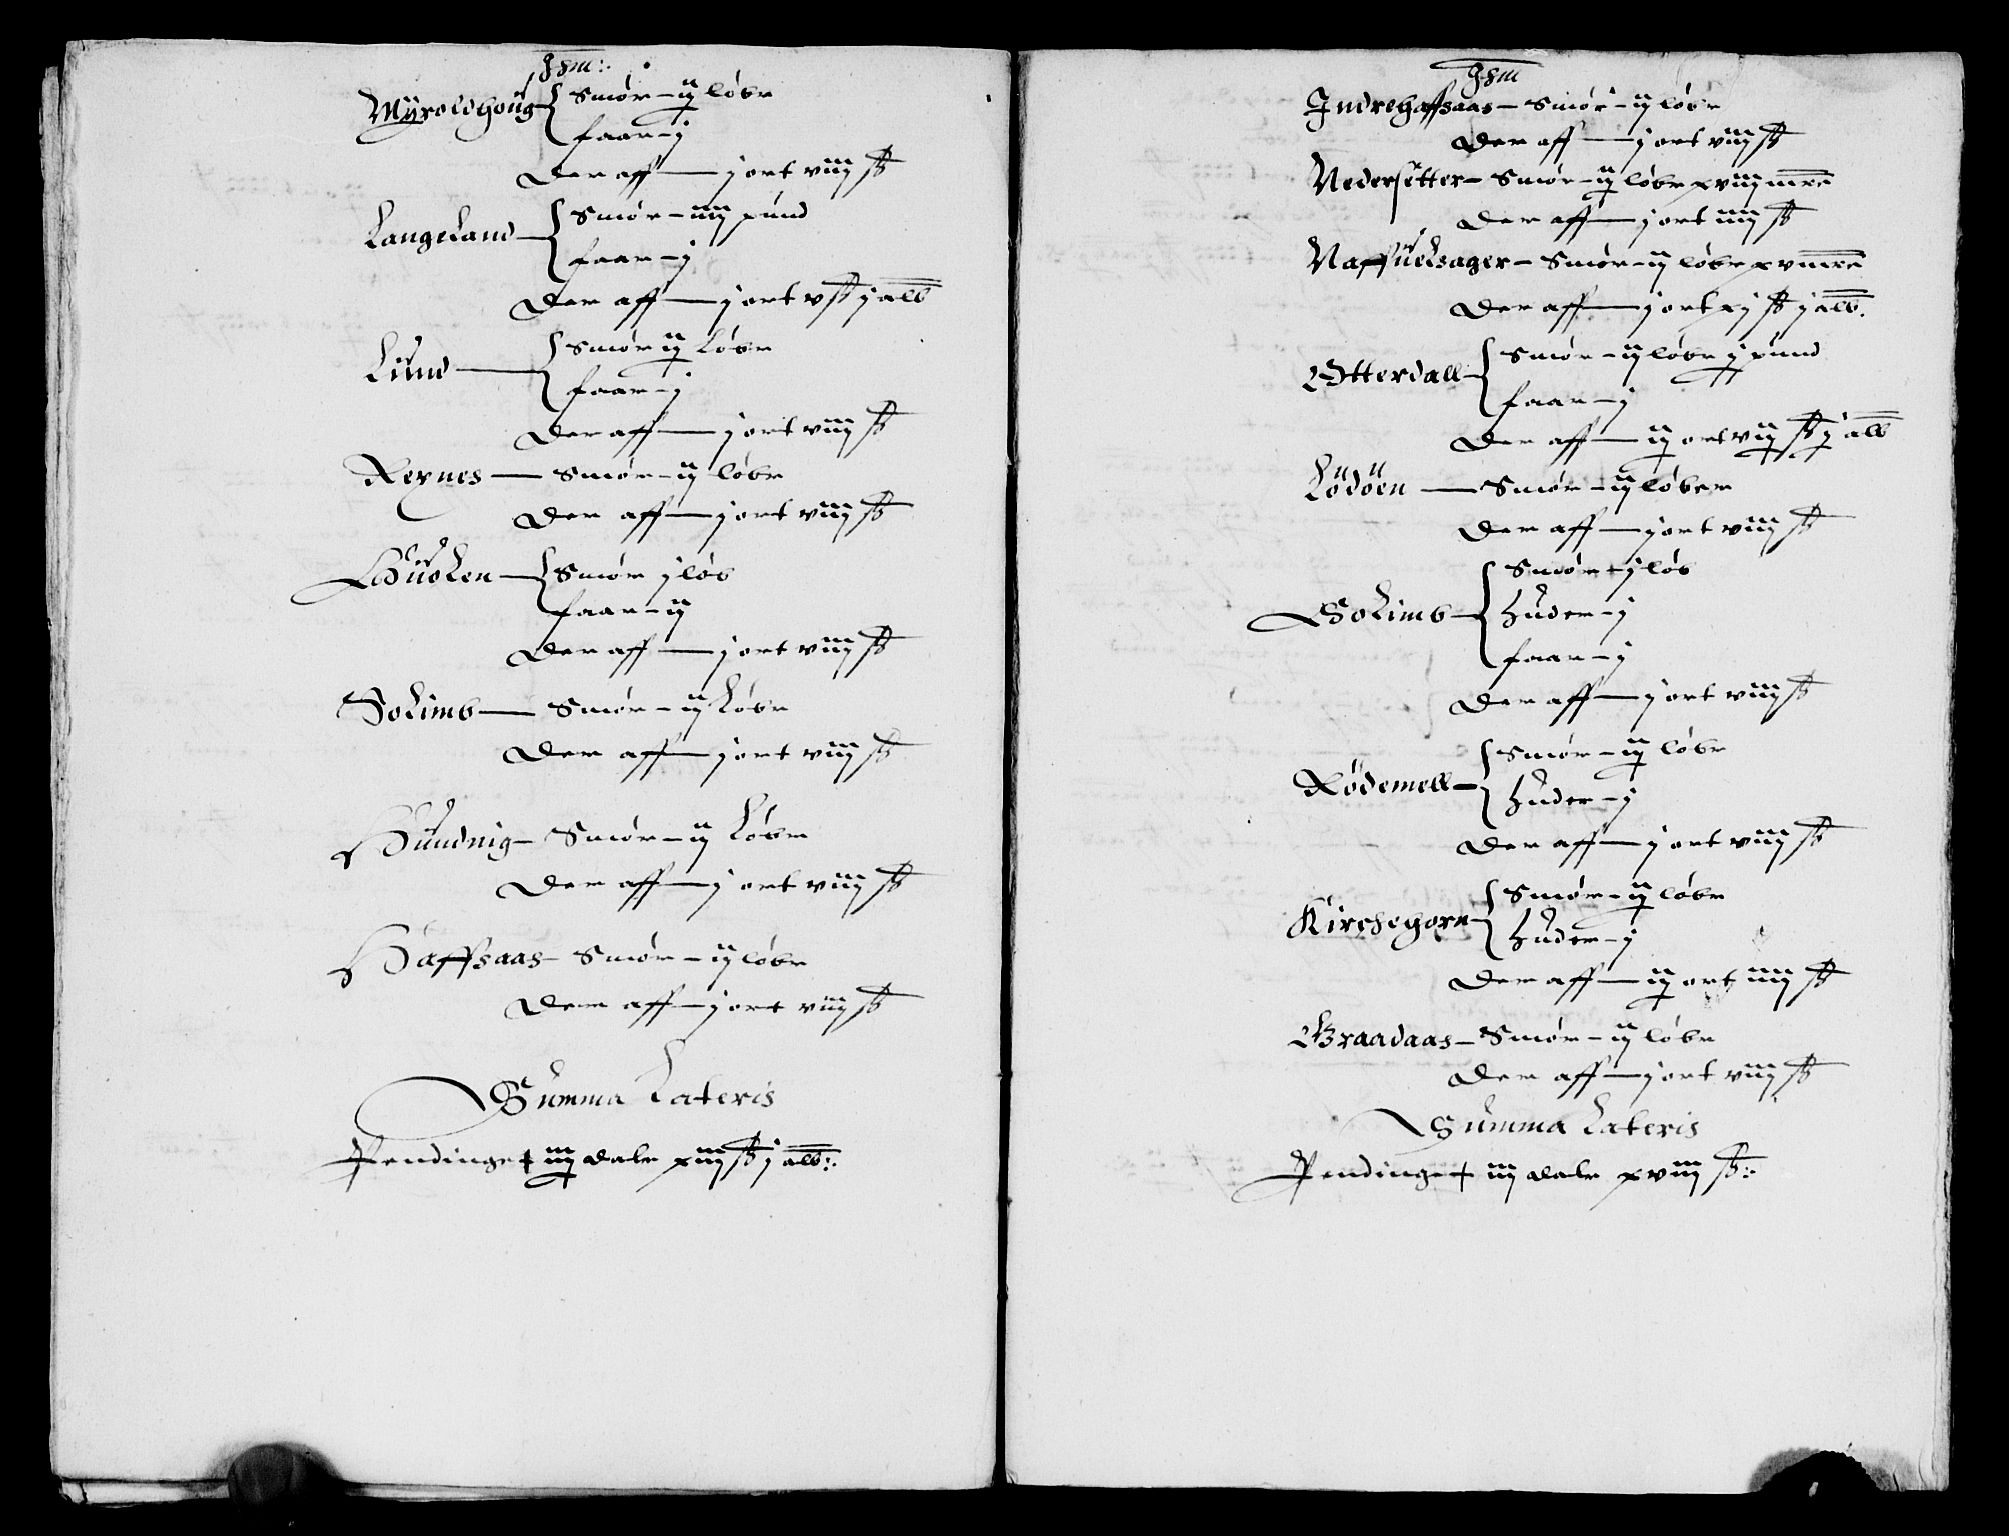 Jtem:
Myroldhoug Smör – ij löbe
faar – j
Der aff — j ort viij ß
Langeland Smör – iiij pund
faar – j
Der aff — j ort v ß j alb
Lund Smör ij Löbe
faar – j
Der aff — j ort viij ß
Reynes — Smör – ij löbe
Der aff — j ort viij ß
Husken Smör j löb
faar – ij
Der aff — j ort viij ß
Solimb — Smör – ij Löbe
Der aff — j ort viij ß
Hundnig – Smör – ij Löbe
Der aff — j ort viij ß
Haffsaas – Smör – ij löbe
Der aff — j ort viij ß
Summa Lateris
Pendinge iij dale xiij ß j alb:
Jtem
Indrehaffsaas – Smör – ij löbe
Der aff — j ort viij ß
Nedersetter – Smör – ij löbe xviij mrc
Der aff — j ort iiij ß
Naffuelsager – Smör – ij löbe xv mrc
Der aff — j ort xj ß j alb.
Otterdall Smör – ij löbe j pund
faar – j
Der aff — ij ort vij ß j alb
Lödöen — Smör – ij löber
Der aff — j ort viij ß
Solimb Smör – j löb
huder – j
faar – j
Der aff — j ort viij ß
Rödemell Smör – ij löbe
huder – j
Der aff — j ort viij ß
Kirchegorn Smör – ij löbe
huder – j
Der aff — ij ort iiij ß
Graadaas – Smör – ij löbe
Der aff — j ort viij ß
Summa Lateris
Pendinge iij dale xviij ß: